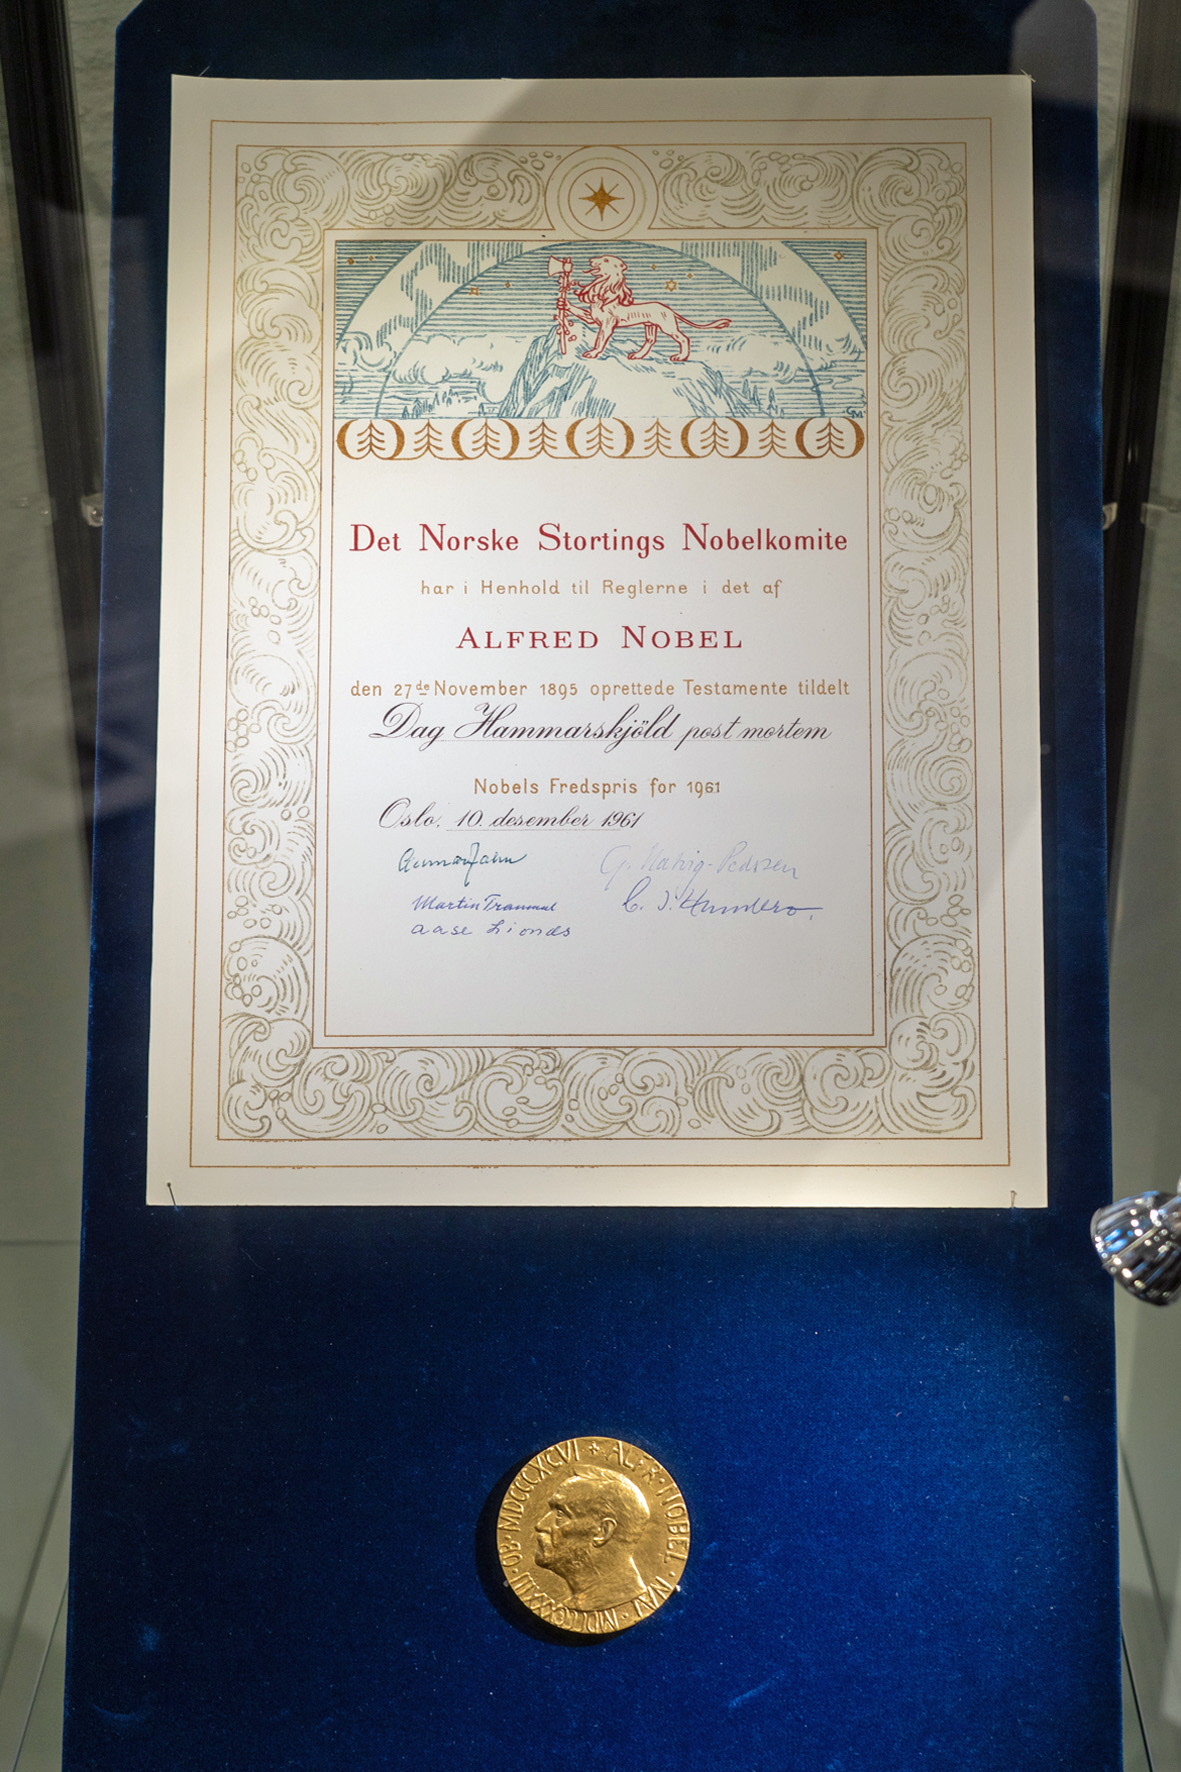 Det Norske Stortings Nobelkomite
har i Henhold til Reglerne i det af
ALFRED NOBEL
den 27de November 1895 oprettede Testamente tildelt
Dag Hammarskjöld post mortem
Nobels Fredspris for 1961
Oslo, 10. desember 1961
Gunnar Jahn
Martin Tranmæl
Aase Lionæs
ALFR· NOBEL · NAT· MDCCCXXXIII · OB· MDCCCXCVI +